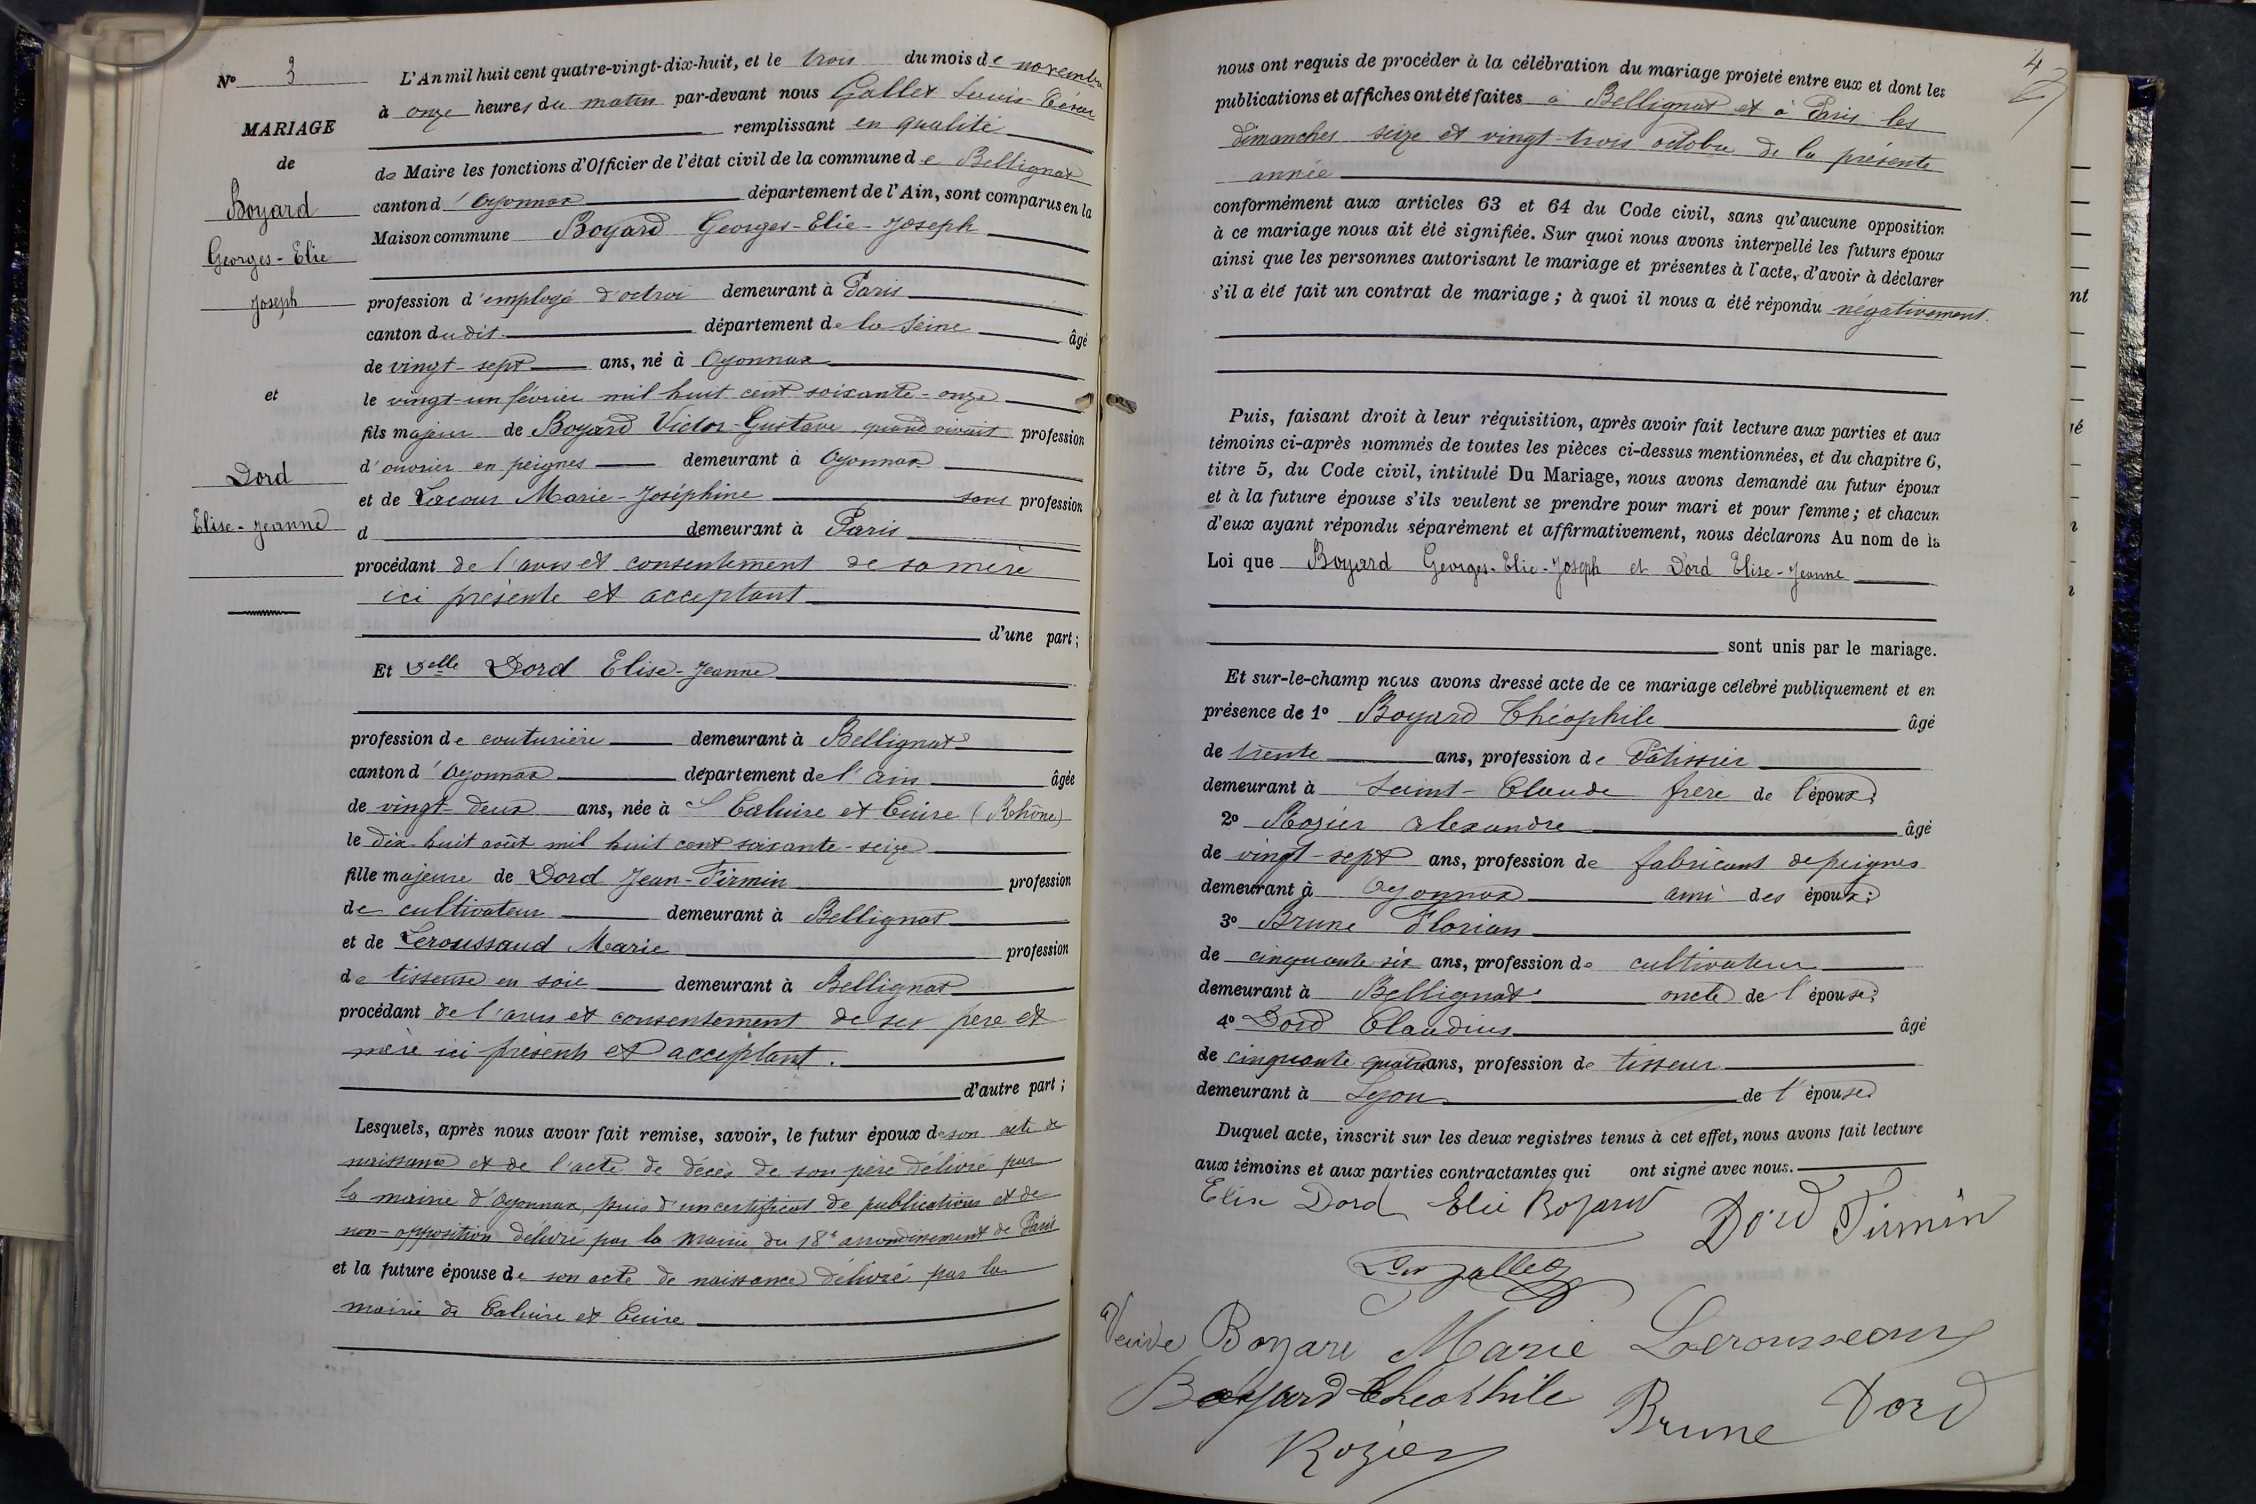 N° 3
MARIAGE
de
Boyard
Georges-Elie
Joseph
et
Dord
Elise-Jeanne
L'An mil huit cent quatre-vingt-dix-huit, et le trois du mois de novembre
à onze heures du matin par-devant nous Gallet Louis-César
remplissant en qualité
de Maire les fonctions d'Officier de l'état civil de la commune de Bellignat
canton d'Oyonnax département de l'Ain, sont comparus en la
Maison commune Boyard Georges-Elie-Joseph
profession d'employé d'octroi demeurant à Paris
canton dudit département de la Seine âgé
de vingt-sept ans, né à Oyonnax
le vingt-un février mil huit cent soixante-onze
fils majeur de Boyard Victor-Gustave quand vivait profession
d'ouvrier en peignes demeurant à Oyonnax
et de Lacour Marie-Joséphine sans profession
d demeurant à Paris
procédant de l'avis et consentement de sa mère
ici présente et acceptant
d'une part;
Et Delle Dord Elise-Jeanne
profession de couturière demeurant à Bellignat
canton d'Oyonnax département de l'Ain âgée
de vingt-deux ans, née à Caluire et Cuire (Rhône)
le dix-huit août mil huit cent soixante-seize
fille majeure de Dord Jean-Firmin profession
de cultivateur demeurant à Bellignat
et de Leroussaud Marie profession
de tisseuse en soie demeurant à Bellignat
procédant de l'avis et consentement de ses père et
mère ici présents et acceptant.
d'autre part;
Lesquels, après nous avoir fait remise, savoir, le futur époux de son acte de
naissance et de l'acte de décès de son père délivré par
la mairie d'Oyonnax, puis d'un certificat de publications et de
non-opposition délivré par la Mairie du 18e arrondissement de Paris
et la future épouse de son acte de naissance délivré par la
mairie de Caluire et Cuire
4
nous ont requis de procéder à la célébration du mariage projeté entre eux et dont les
publications et affiches ont été faites à Bellignat et à Paris les
dimanches seize et vingt-trois octobre de la présente
année
conformément aux articles 63 et 64 du Code civil, sans qu'aucune opposition
à ce mariage nous ait été signifiée. Sur quoi nous avons interpellé les futurs époux
ainsi que les personnes autorisant le mariage et présentes à l'acte, d'avoir à déclarer
s'il a été fait un contrat de mariage; à quoi il nous a été répondu négativement.
Puis, faisant droit à leur réquisition, après avoir fait lecture aux parties et aux
témoins ci-après nommés de toutes les pièces ci-dessus mentionnées, et du chapitre 6,
titre 5, du Code civil, intitulé Du Mariage, nous avons demandé au futur époux
et à la future épouse s'ils veulent se prendre pour mari et pour femme; et chacun
d'eux ayant répondu séparément et affirmativement, nous déclarons Au nom de la
Loi que Boyard Georges-Elie-Joseph et Dord Elise-Jeanne
sont unis par le mariage.
Et sur-le-champ nous avons dressé acte de ce mariage célébré publiquement et en
présence de 1° Boyard Théophile âgé
de trente ans, profession de Pâtissier
demeurant à Saint-Claude frère de l'époux;
2° Rozier Alexandre âgé
de vingt-sept ans, profession de fabricant de peignes
demeurant à Oyonnax ami des époux;
3° Brune Florian
de cinquante six ans, profession de cultivateur
demeurant à Bellignat oncle de l'épouse;
4° Dord Claudius âgé
de cinquante quatre ans, profession de tisseur
demeurant à Lyon de l'épouse
Duquel acte, inscrit sur les deux registres tenus à cet effet, nous avons fait lecture
aux témoins et aux parties contractantes qui ont signé avec nous.
Elise Dord Elie Boyard Dord Firmin
Gallet
Veuve Boyard Marie Lerousseau
Boyard Théophile Brune Dord
Rozier